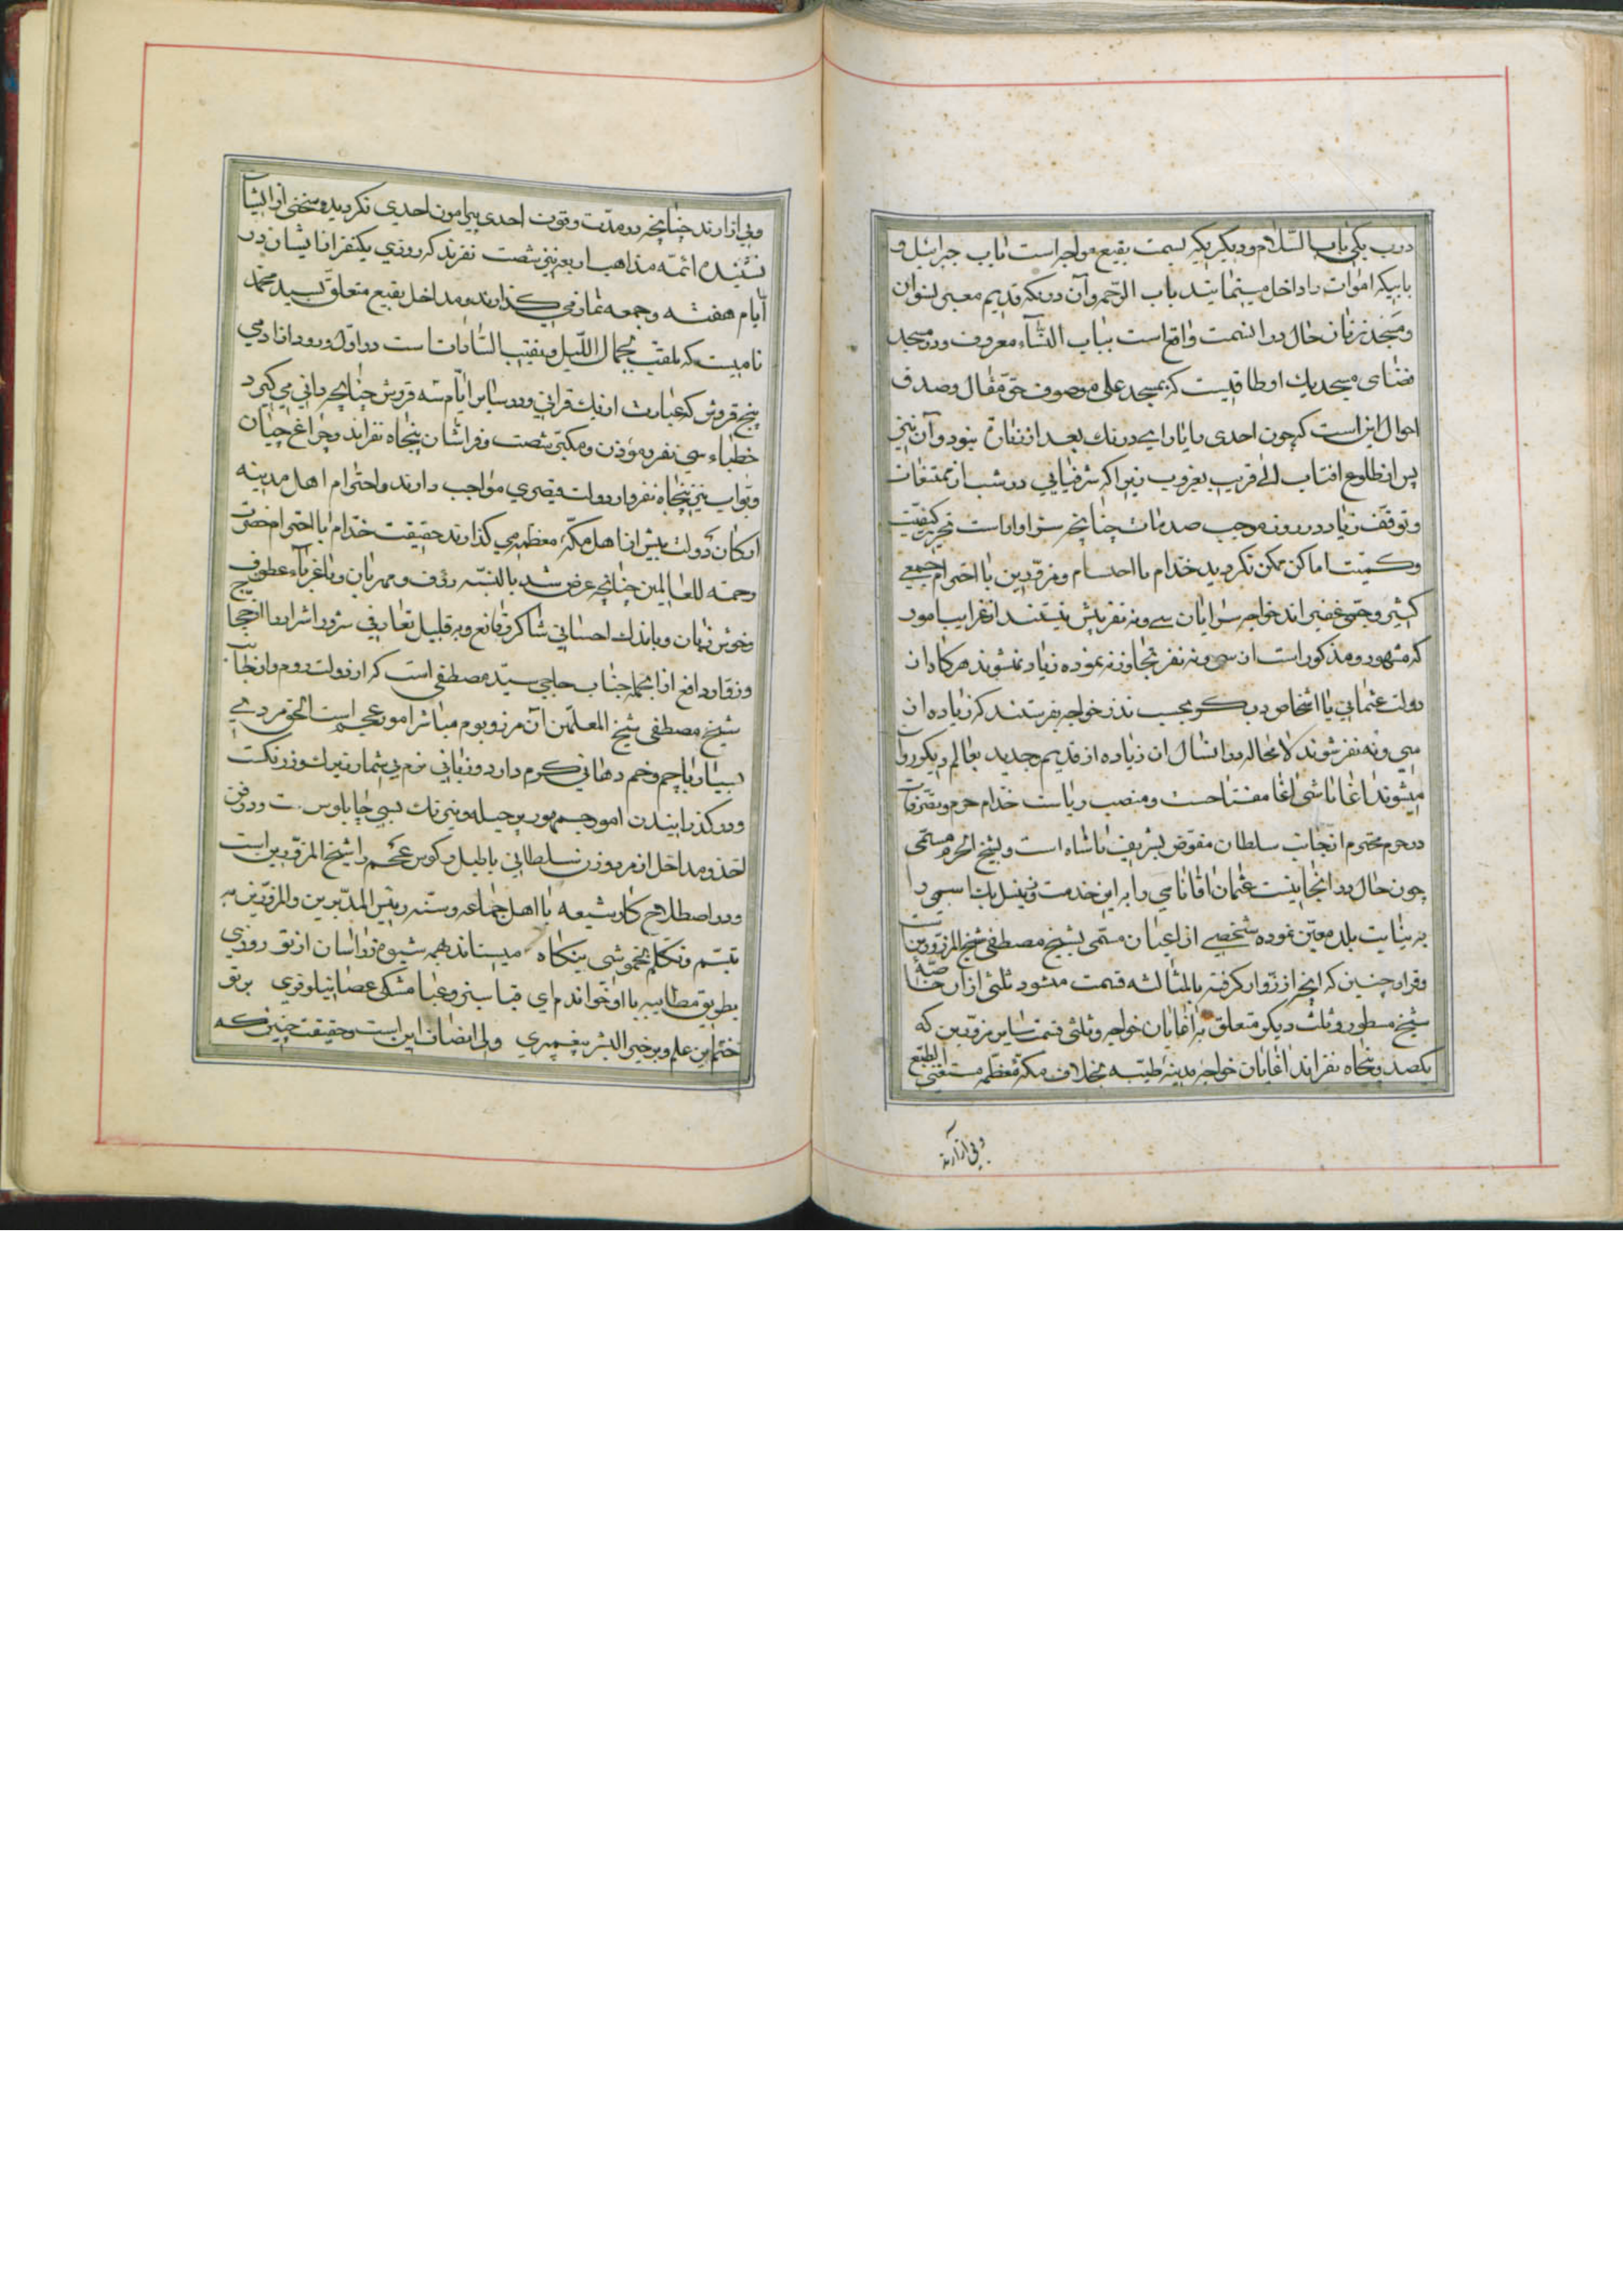 درب یکی باب السّلام و دیگر یکه بسمت بقیع مواجه است باب جبرائیل و
بابیکه اموات را داخل مینمایند باب الرّحمه و آن درنکه قدیم معبر نسوان
و مسجد زنان حال در انسمت واقع است بباب النّساء معروف و در مسجد
فضای مسجد یك اوطاقیست که بمسجد علی موصوف حقّ مقال و صدق
احوال این است که چون احدی را یارای درنك بعد از نبود و آن نیز
پس از طلوع افتاب الی قریب بغروب زیرا که شرفیابی در شب از ممتنعات
و توقف زیاد در روز موجب صدمات چنانچه سزاوار است تحریر کیفیّت
و کمیّت اماکن ممکن نکردید خدّام با احتشام و مزوّرین با احترام جمعی
کثیر و جمّ غفیر اند خواجه سرایان سی و نه نفر بیش نیستند از غرایب امور
که مشهور و مذکور است از سی و نه نفر تجاوز نه نموده زیاد نمیشوند هرکاه از
دولت عثمانی یا اشخاص دیکر بحسب نذر خواجه بفرستند که زیاده از
سی و نه نفر شوند لا محاله در انسال ان زیاده از قدیم و جدید بعالم دیکر روا
میشوند اغا باشی اغا مفتاحست و منصب ریاست خدّام حرم و تصرّفات
در حرم محترم از نجانب سلطان مفوّض بشریف پاشاه است و شیخ الحرم مسمّی
چون حال در انجا نیست عثمان اقا نامی را برای این خدمت و فیصل بك اسمی را
به نیابت بلد معیّن نموده شخصی از اعیان مسمّی بشیخ مصطفی شیخ المزوّرین است
و قرار چنین که انچه از زوّار کرفته بالمثالثه قسمت میشود ثلثی از ان خاصّه
شیخ مسطور و ثلث دیکر متعلّق به اغایان خواجه و ثلثی قسمت سایر مزوّرین که
یکصد و پنجاه نفر اند اغایان خواجه مدینه طیّبه بخلاف مکه معظّمه مستغنی الطّبع
و بی ازارند
و بی ازارند چنانچه در مدّت وقوف احدی پیرامون احدی نکردید و سخنی از ایشان
نشنیده ائمّه مذاهب اربعه نیز شصت نفرند که روزی یکنفر از ایشان در
ایّام هفته و جمعه نماز می کذارند و مداخل بقیع متعلّق بسید محمّد
نامیست که ملقّب بجمال اللّیل و نقیب السّادات است در اوّل ورود از ادمی
پنج قروش که عبارت از یك قرانی و در سایر ایّام سه قروش چنانچه دانی می کیرد
خطباء سی نفر مؤذن و مکبّر شصت و فراشان پنجاه نفر اند و چراغچیان
و بوّاب نیز پنجاه نفر و از دولت قیصری مواجب دارند و احترام اهل مدینه
ارکان دولت بیش از اهل مکّه معظمه می کذارند حقیقت خدّام با احترام حضرت
رحمة للعالمین چنانچه عرض شد بالنسّبه رؤف و مهربان و با غرباء عطوف
و خوش زبان و باندك احسانی شاکر و قانع و به قلیل تعارفی شرور اشرار را از حجّاج
و زوّار دافع از انجمله جناب حاجی سیّد مصطفی است که از دولت روم و از نجانب
شیخ مصطفی شیخ المعلّمین آن مرز و بوم مباشر امور عجم است الحق مردی
بسیار با چم و خم دهانی کرم دارد و زبانی نرم بی شمار زیرك و زرنکست
و در کذرانیدن امور جمهور پر حیله و نیرنك بسی چاپلوس است و در فن
اخذ و مداخل از مرد و زن سلطانی با طبل و کوس عجم را شیخ المزوّرین است
و در اصطلاح کار شیعه با اهل جماعه و سنّه رئیس المدبّرین و المزوّرین به
تبسّم و تکلّم بخموشی بنکاه میستاند همه شیوه زوّاسان از تو روزی
بطریق مطایبه با او خواندم ای قبا سبز و عبا مشکی عصا نیلوفری بر تو
ختم این علم و بر خیر البشر پیغمبری ولی انصاف این است و حقیقت چنین که